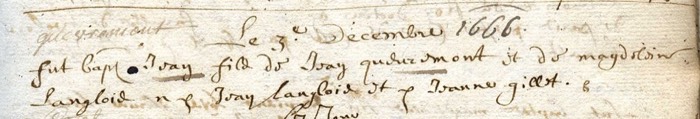 quevremont
Le 3e Decembre 1666
fut bap Jean fils de Jean quevremont et de magdeleine
Langlois n p Jean Langlois et p Jeanne gillet.